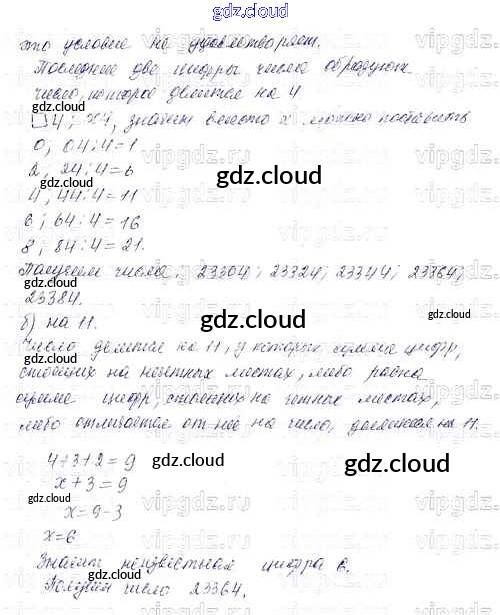 gdz.cloud
это условие не удовлетворяет.
Последние две цифры числа образуют
число, которое делится на 4
gdz.cloud
□4; x4, значит вместо x можно поставить
0; 04:4=1
2; 24:4=6
gdz.cloud
4; 44:4=11
6; 64:4=16
8; 84:4=21.
Получим числа: 23304; 23324; 23344; 23364;
gdz.cloud
23384.
б) на 11.
gdz.cloud
gdz.cloud
Число делится на 11, у которых сумма цифр,
gdz.cloud
стоящих на нечетных местах, либо равна
сумме цифр, стоящих на четных местах,
либо отличается от неё на число, делящееся на 11.
4+3+2=9
gdz.cloud
gdz.cloud
x+3=9
gdz.cloud
x=9-3
x=6
Значит неизвестная цифра 6.
gdz.cloud
Получим число 23364.
vipgdz.ru